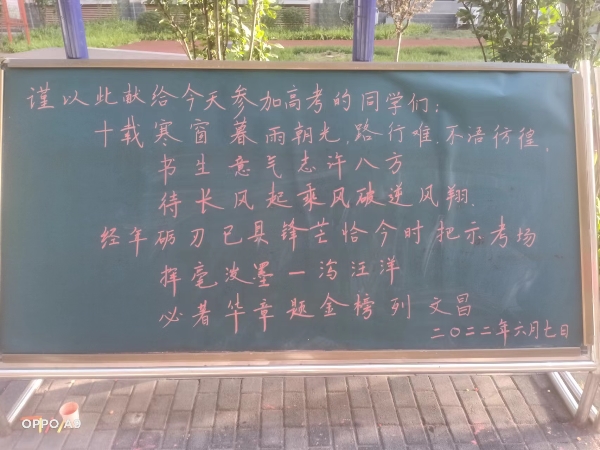 谨以此献给今天参加高考的同学们:
十载寒窗暮雨朝光,路行难.不语彷徨,
书生意气志许八方
待长风起乘风破逆风翔.
经年砺刃已具锋芒恰今时把示考场
挥毫泼墨一泻汪洋
必著华章题金榜列文昌
二〇二二年六月七日
OPPO A9